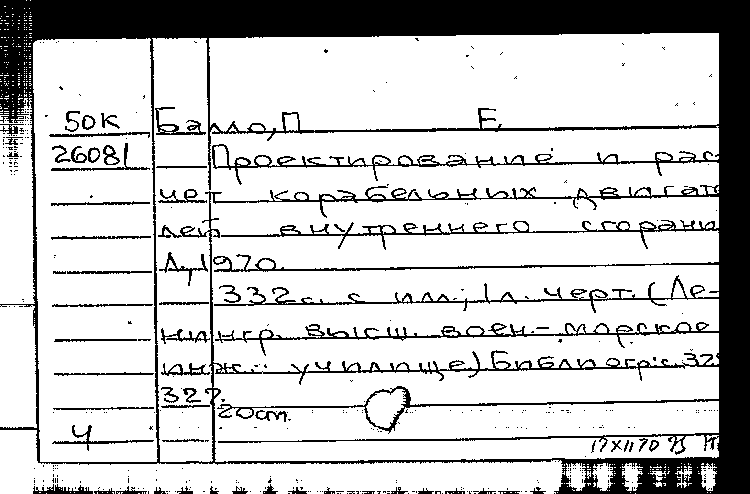 50К Балло, П Е,
26081 Проектирование и рас-
чет корабельных двигат
лей внутреннего сгорани
Л., 1970.
332с. с илл.; 1л. черт. (Ле-
нингр. высш. воен.-морское
инж. училище) Библиогр.: с. 325
327.
20см.
4
17 XII 70